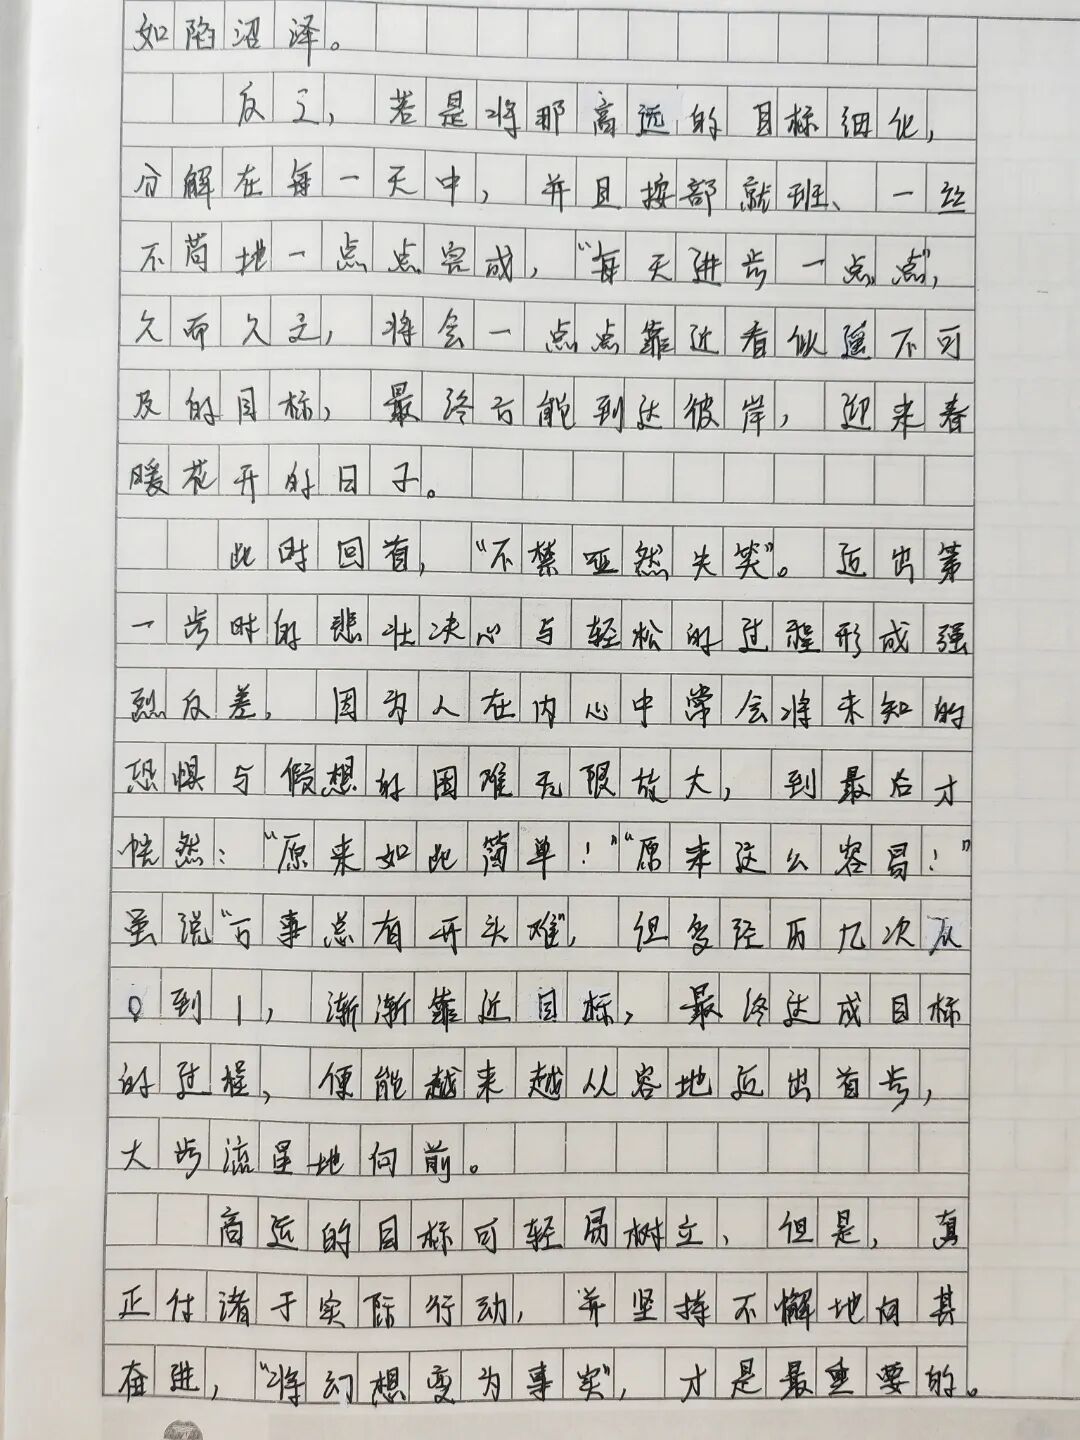 如陷沼泽。
反之，若是将那高远的目标细化，
分解在每一天中，并且按部就班、一丝
不苟地一点点完成，“每天进步一点点”，
久而久之，将会一点点靠近看似遥不可
及的目标，最终方能到达彼岸，迎来春
暖花开的日子。
此时回首，“不禁哑然失笑”。迈出第
一步时的悲壮决心与轻松的过程形成强
烈反差，因为人在内心中常会将未知的
恐惧与假想的困难无限放大，到最后才
恍然：“原来如此简单！”“原来这么容易！”
虽说“万事总有开头难”，但多经历几次从
0到1，渐渐靠近目标，最终达成目标
的过程，便能越来越从容地迈出首步，
大步流星地向前。
高远的目标可轻易树立，但是，真
正付诸于实际行动，并坚持不懈地向其
奋进，“将幻想变为事实”，才是最重要的。